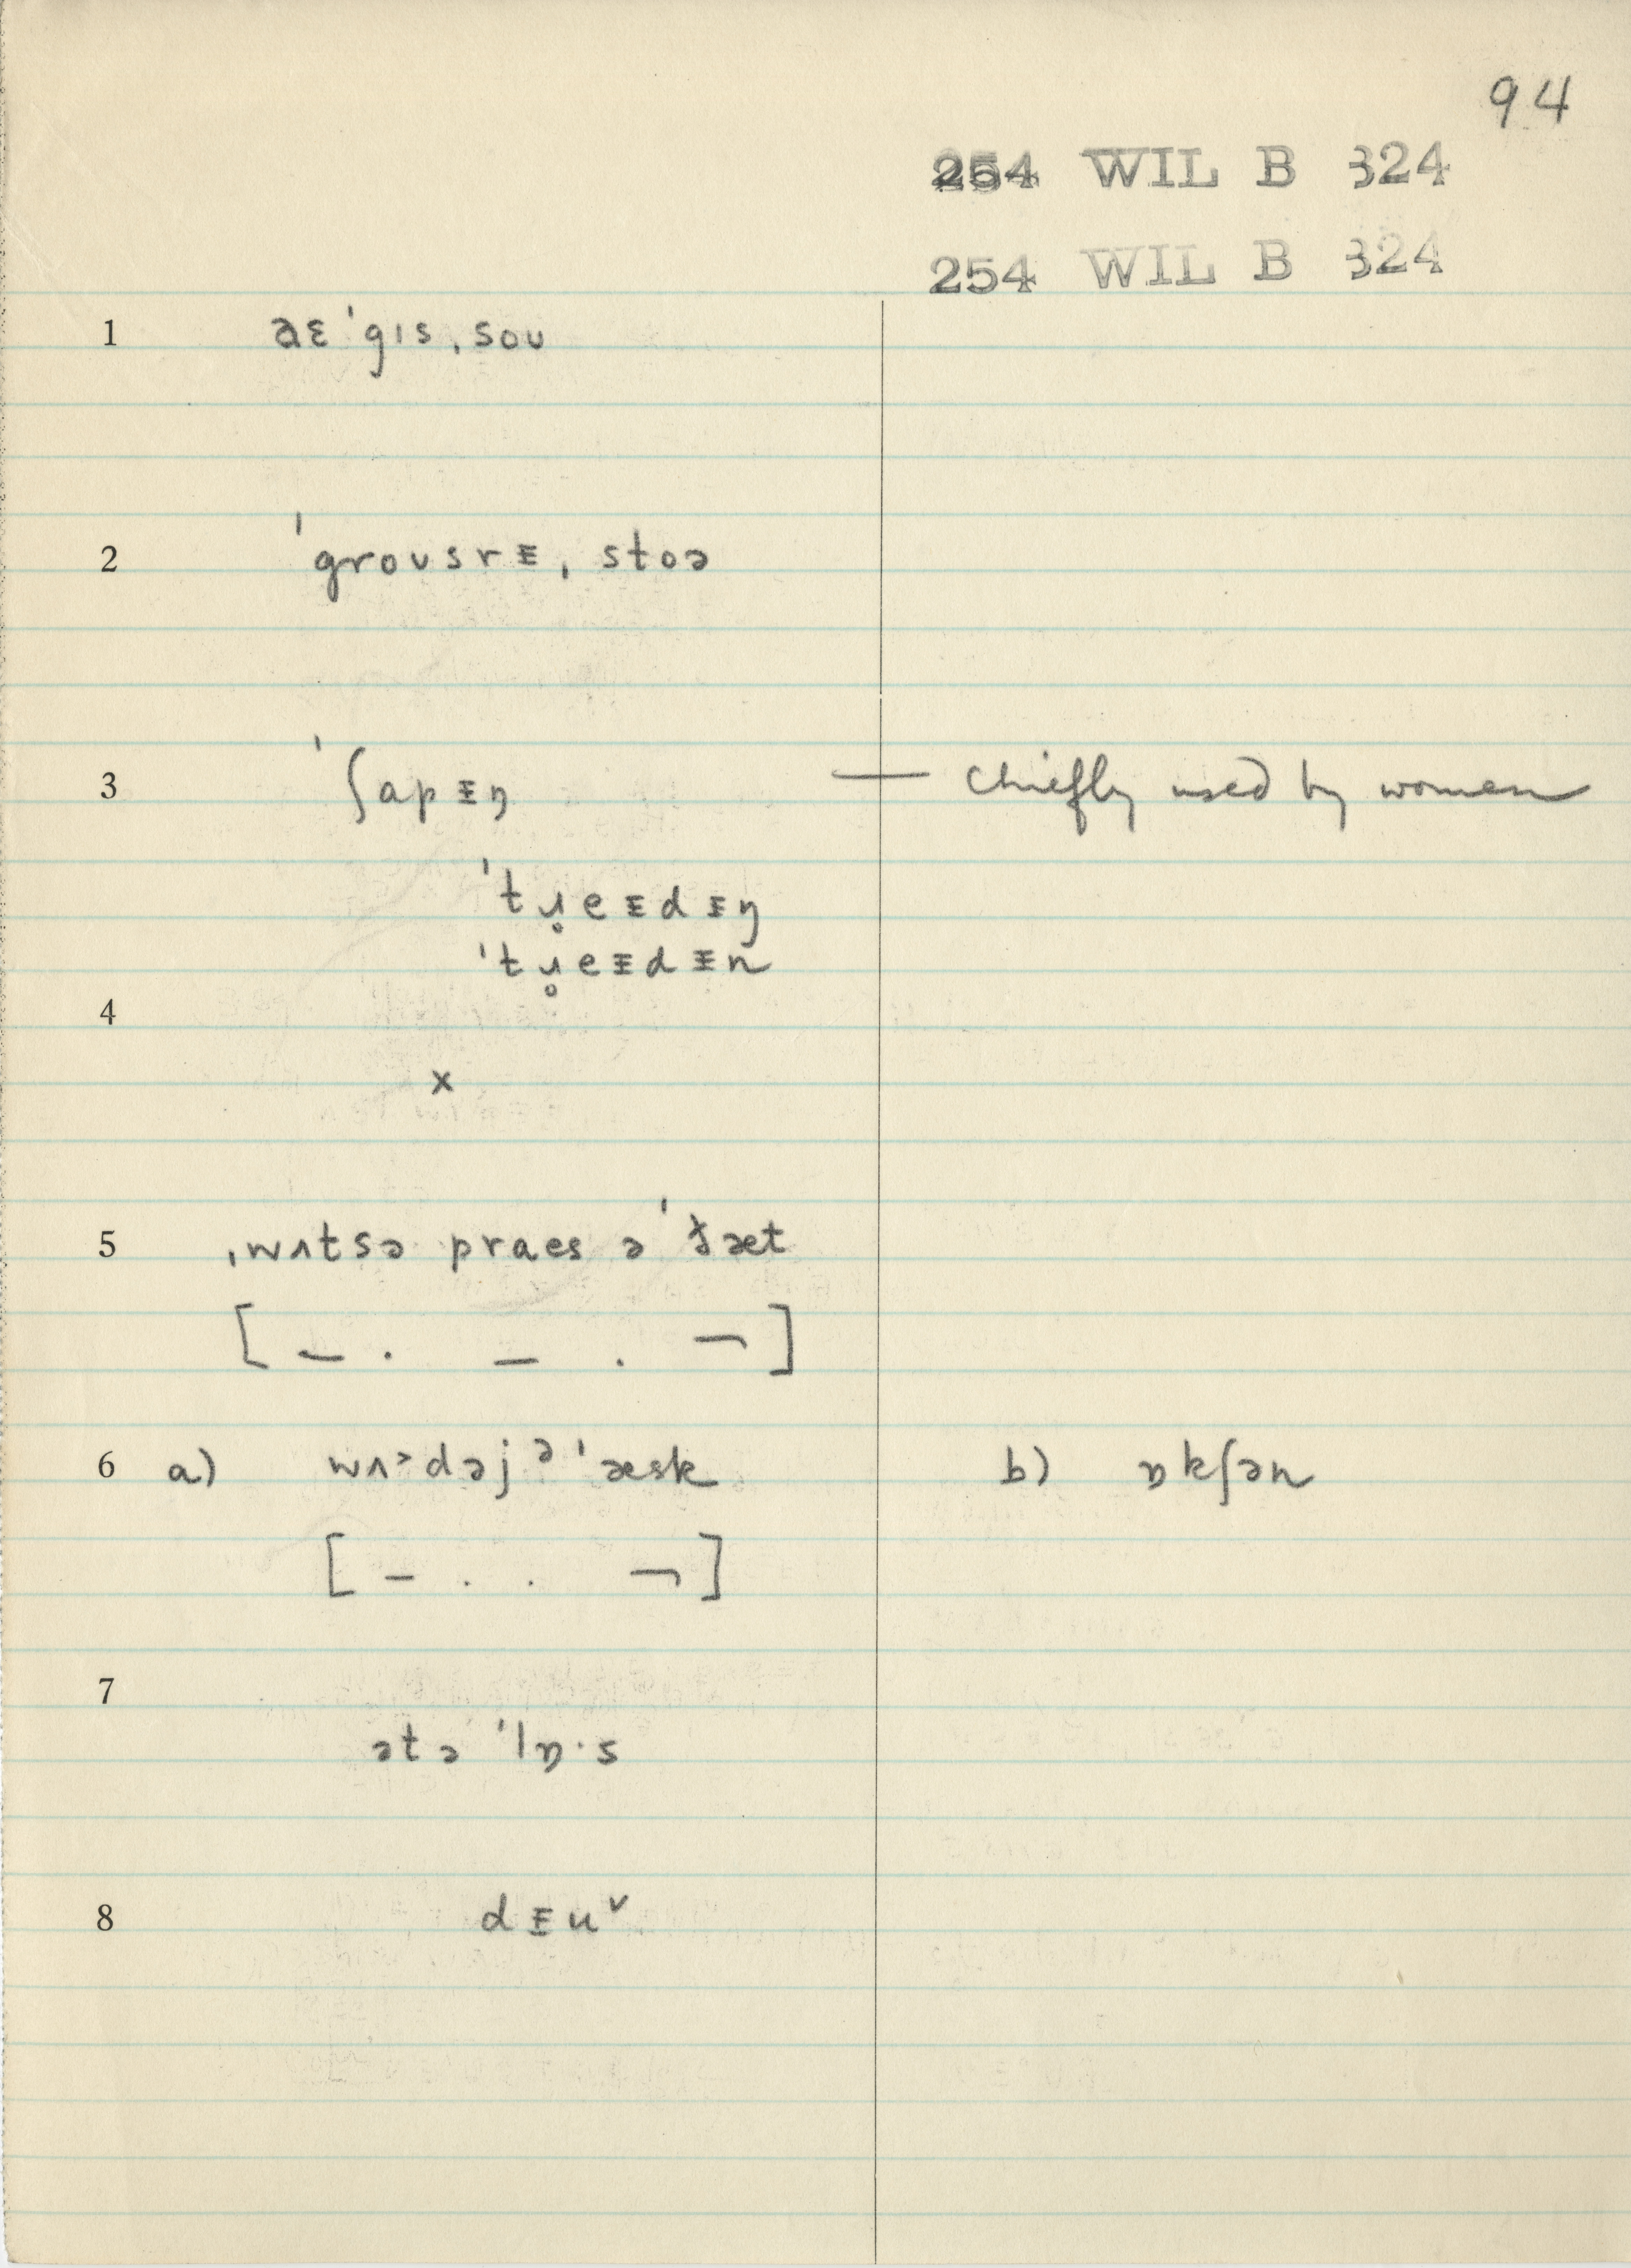 94
254 WIL B 324
254 WIL B 324
1 aɛ ˈgɪs ˌsou
2 ˈgrousrᵻ, stoə
3 ˈʃapᵻŋ — chiefly used by women
ˈtɹ̥eᵻdᵻŋ
ˈtɹ̥eᵻdᵻn
4
x
5 ˌwʌtsə praes ə ˈðæt
[ – . – . ¬ ]
6 a) wʌ˃dəjᵊ ˈæsk b) ɒkʃən
[ – . . ¬ ]
7
ətə ˈlɒ·s
8 dᵻu˅